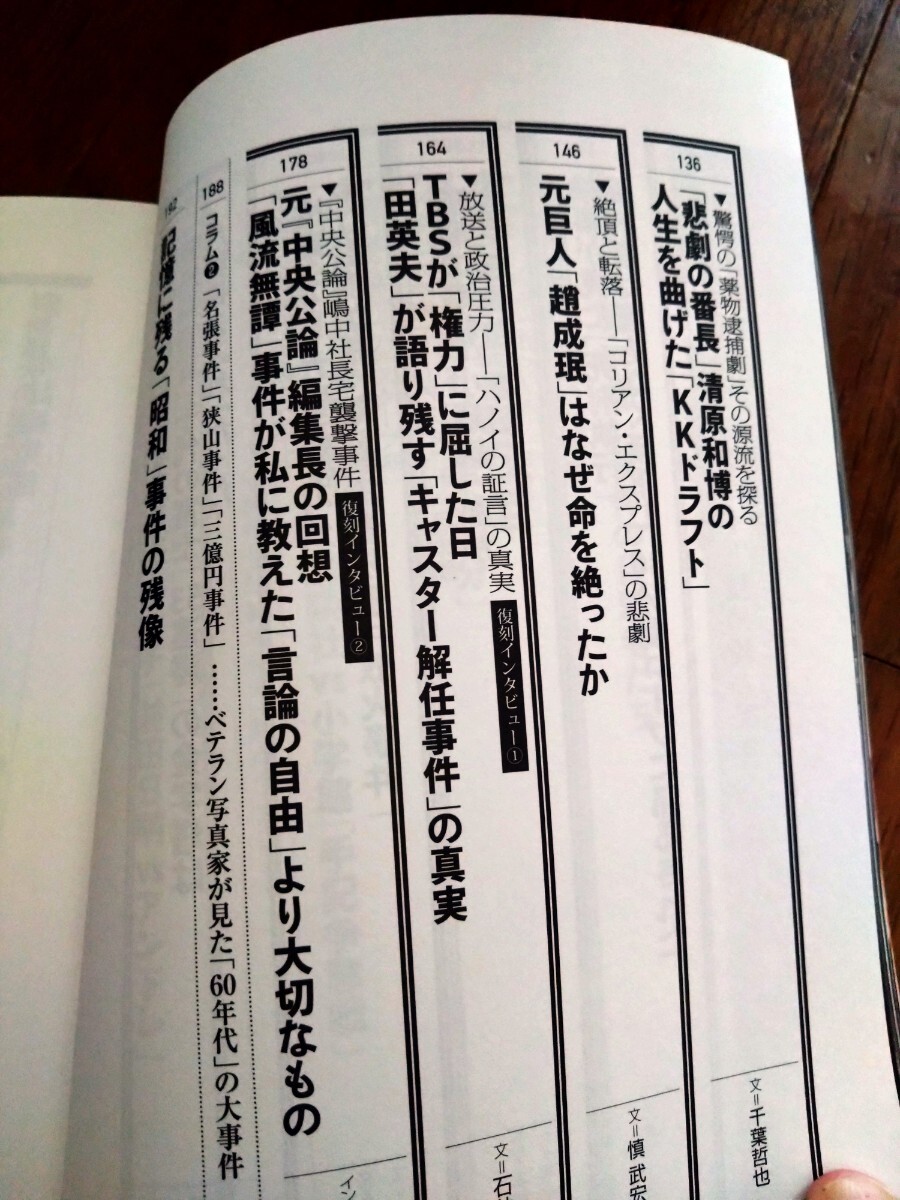 136
▼驚愕の「薬物逮捕劇」その源流を探る
「悲劇の番長」清原和博の
人生を曲げた「KKドラフト」
文=千葉哲也
146
▼絶頂と転落――「コリアン・エクスプレス」の悲劇
元巨人「趙成珉」はなぜ命を絶ったか
文=慎 武宏
164
▼放送と政治圧力――「ハノイの証言」の真実
復刻インタビュー①
TBSが「権力」に屈した日
「田英夫」が語り残す「キャスター解任事件」の真実
文=石
178
▼『中央公論』嶋中社長宅襲撃事件
復刻インタビュー②
元『中央公論』編集長の回想
「風流無譚」事件が私に教えた「言論の自由」より大切なもの
イン
188
コラム❷ 「名張事件」「狭山事件」「三億円事件」……ベテラン写真家が見た「60年代」の大事件
192
記憶に残る「昭和」事件の残像